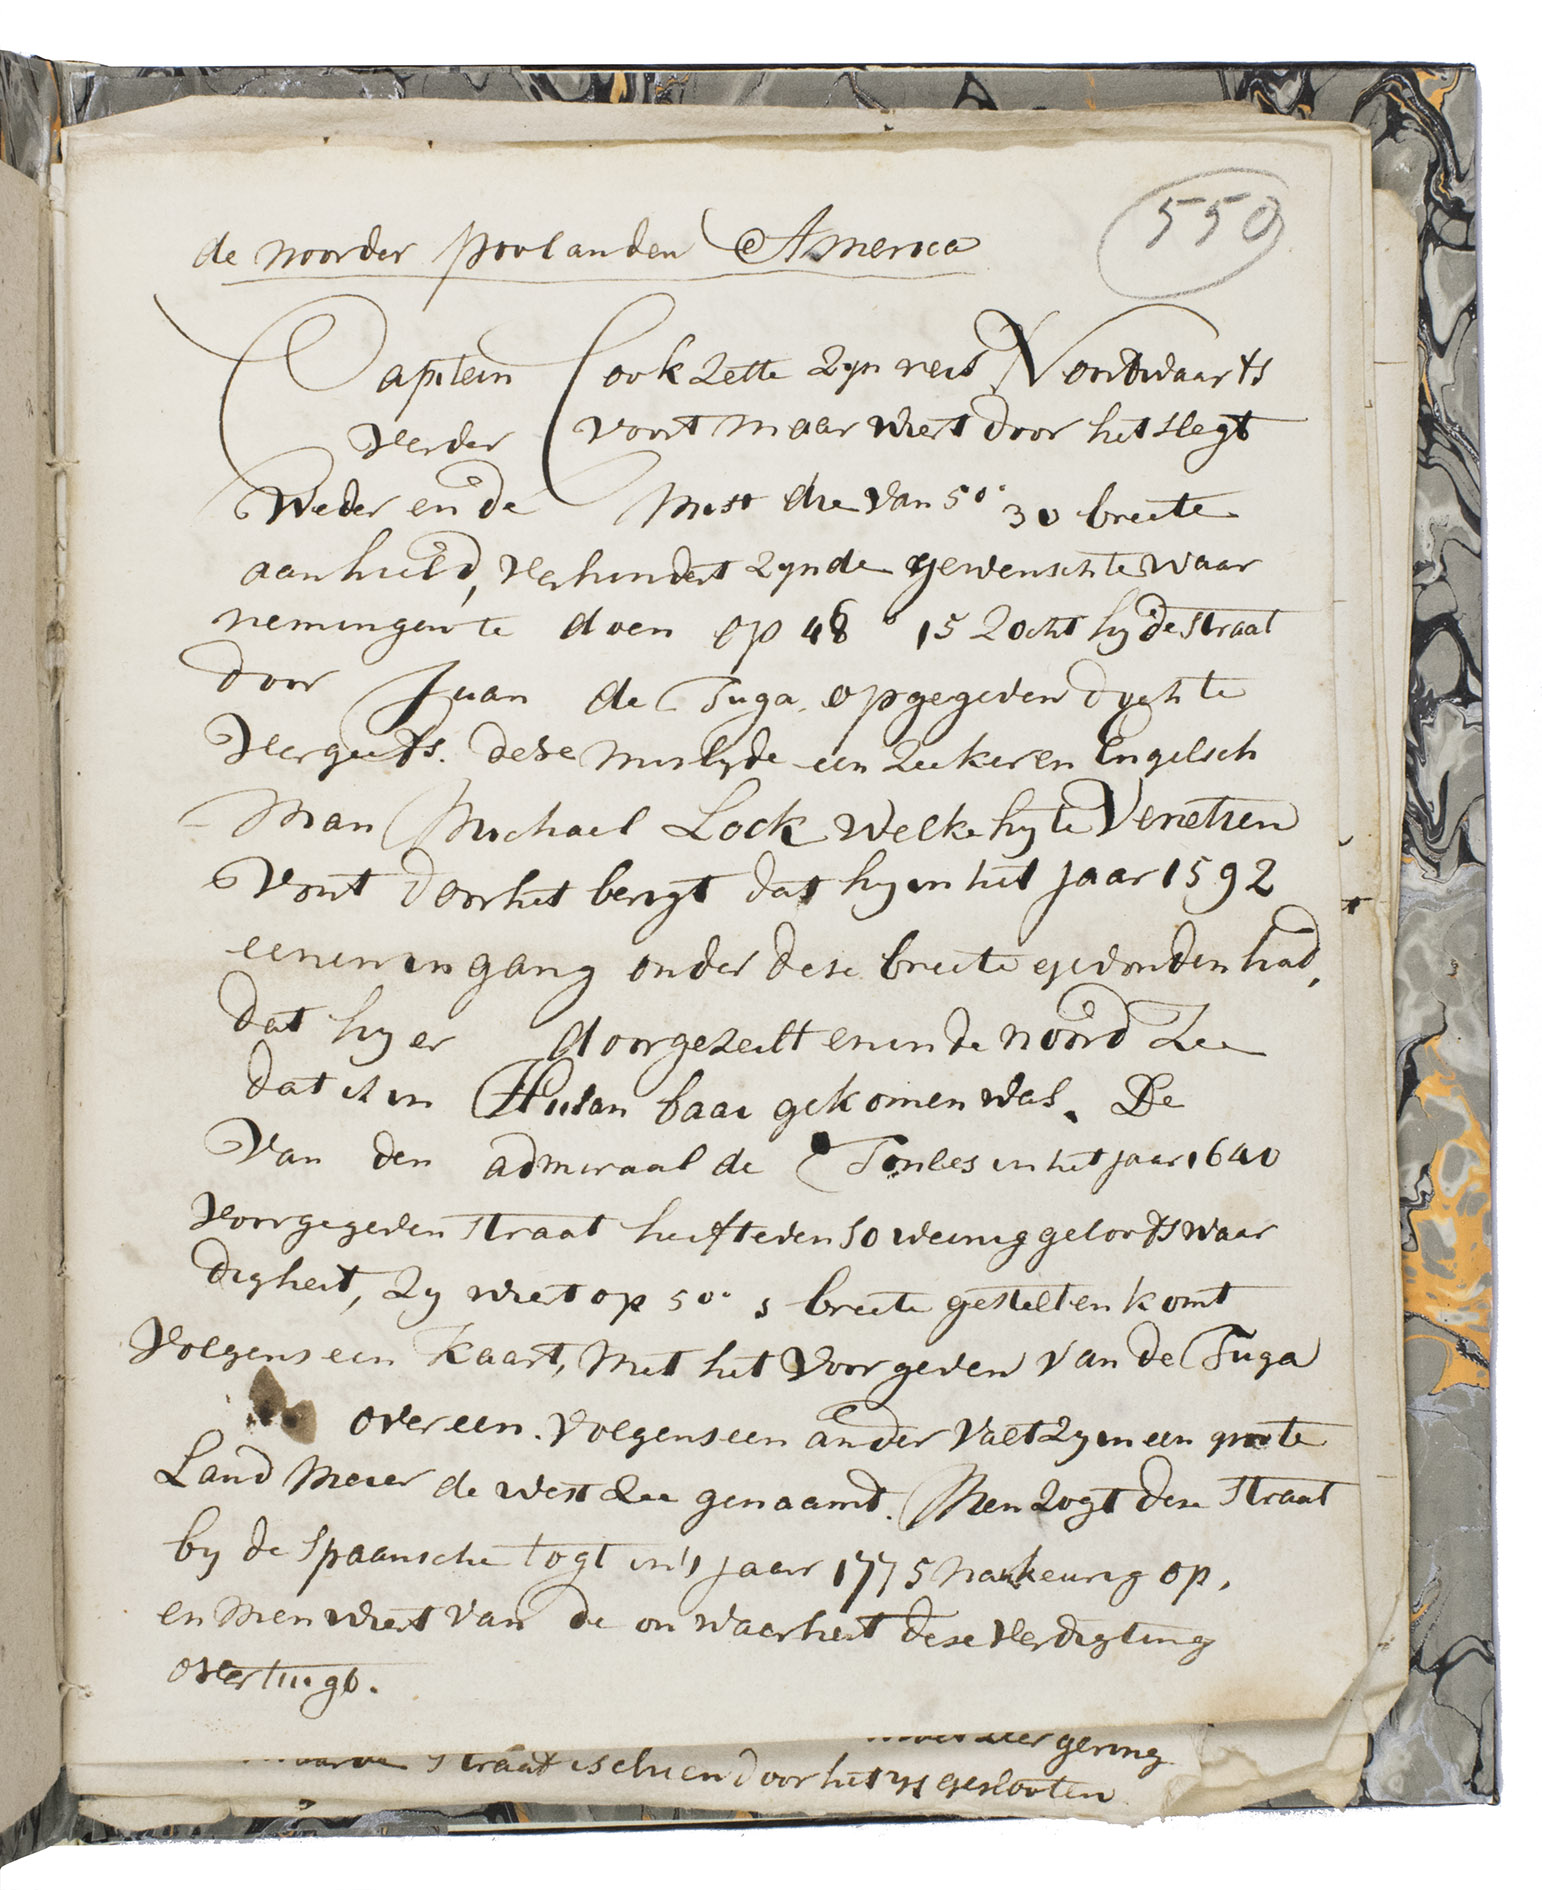 550
de noorder poolanden America
Captein Cook zette zyn reis Nordwaarts
verder voort maar wiert door het slegt
weder en de mist die van 50° 30 breete
aanhield, verhindert zynde gewenschte waar
nemingen te doen op 48° 15 zocht hy de straat
door Juan de Fuga opgegeven doch te
vergeefs. dese misleyde een zeekeren Engelsch
man Michael Lock welke hy te Venetien
vont door het berigt dat hy in het jaar 1592
eenen in gang onder dese breete gevonden had,
dat hy er doorgezeilt en in de noord Zee
dat is in Hudson baai gekomen was. De
van den admiraal de Fontes in het jaar 1640
voorgegeven straat heeft even so weinig geloofswaar
digheit, zy wiert op 50° s breete gestelt en komt
volgens een kaart, met het voorgeven van de Fuga
over een. volgens een ander valt zy in een groote
Land meer de west Zee genaamt. Men zogt dese straat
by de spaansche togt in't jaar 1775 naukeurig op,
en men wiert van de onwaarheit dese verdigting
overtuigt.
zeer gering
straat is
door het ys geslooten